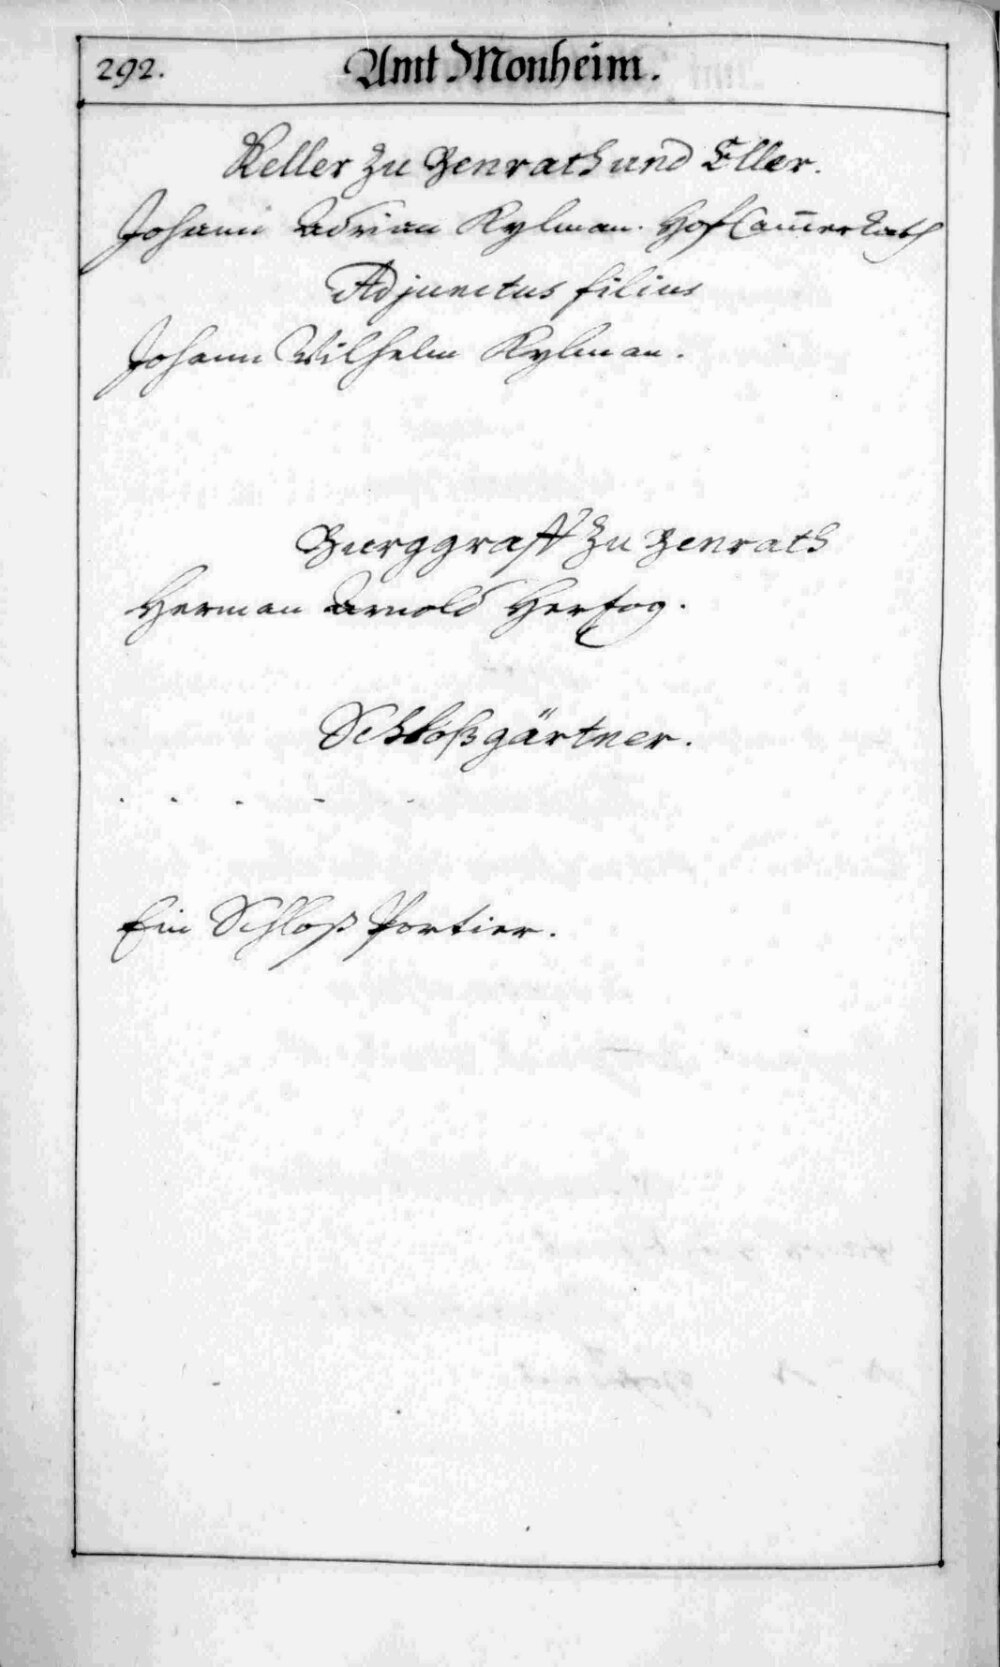 292.
Amt Monheim.
Keller zu Benrath und Eller.
Johann Adrian Kylman. Hof Cam̄er Rath
Adjunctus filius
Johann Wilhelm Kylman.
Burggraff zu Benrath
Herman Arnold Hertzog.
Schloßgärtner.
. . . . .
Ein Schloß Portier.